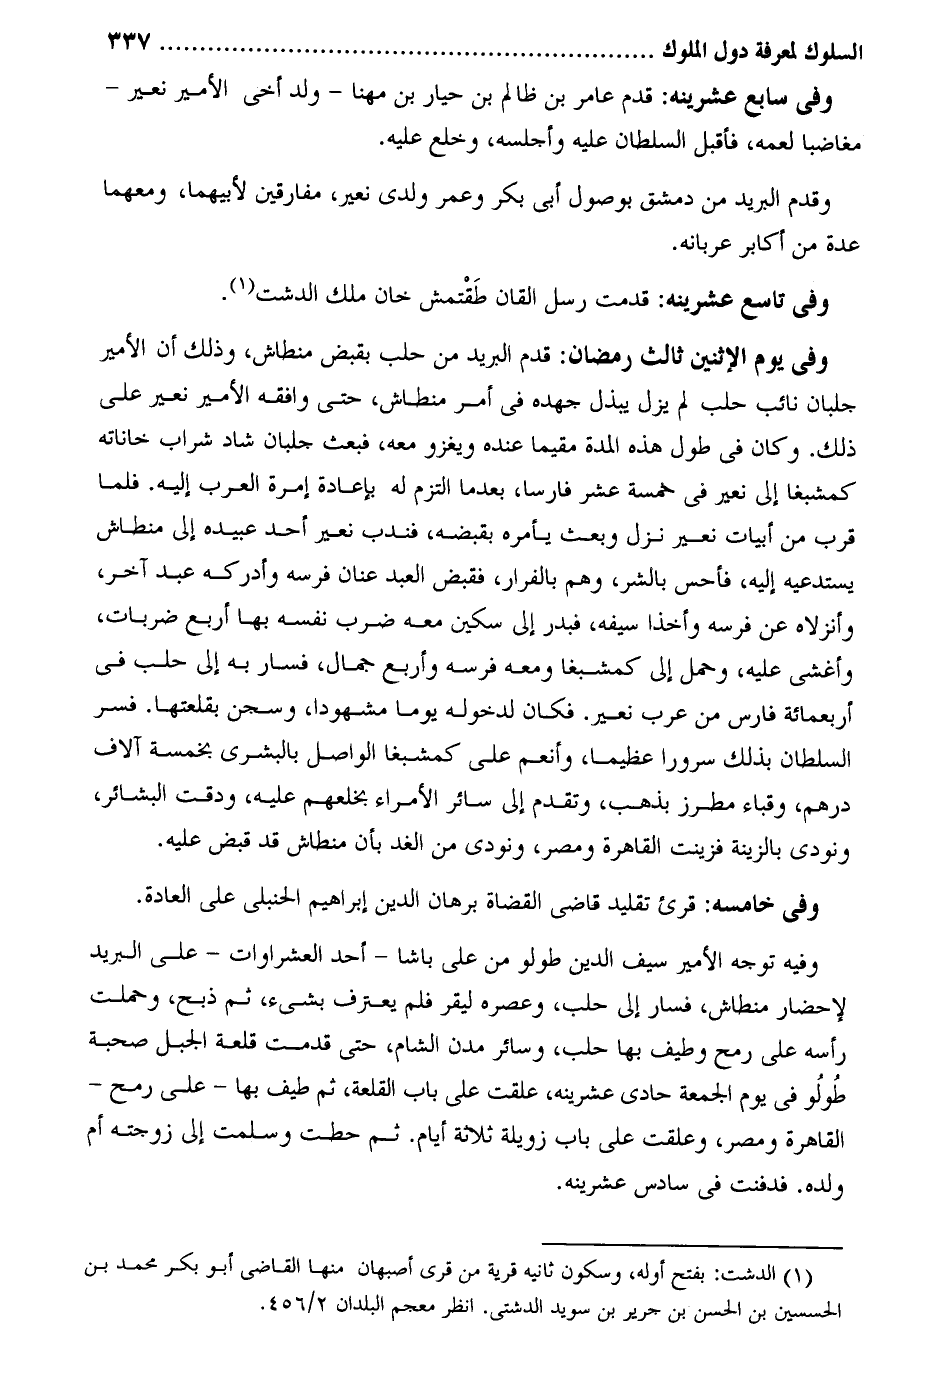 السلوك لمعرفة دول الملوك .............................................................. ٣٣٧
وفى سابع عشرينه: قدم عامر بن ظالم بن حيار بن مهنا – ولد أخى الأمير نعير –
مغاضبا لعمه، فأقبل السلطان عليه وأجلسه، وخلع عليه.
وقدم البريد من دمشق بوصول أبى بكر وعمر ولدى نعير، مفارقين لأبيهما، ومعهما
عدة من أكابر عربانه.
وفى تاسع عشرينه: قدمت رسل القان طَقْتمش خان ملك الدشت(١).
وفى يوم الإثنين ثالث رمضان: قدم البريد من حلب بقبض منطاش، وذلك أن الأمير
جلبان نائب حلب لم يزل يبذل جهده فى أمر منطاش، حتى وافقه الأمير نعير على
ذلك. وكان فى طول هذه المدة مقيما عنده ويغزو معه، فبعث جلبان شاد شراب خاناته
كمشبغا إلى نعير فى خمسة عشر فارسا، بعدما التزم له بإعادة إمرة العرب إليه. فلما
قرب من أبيات نعير نزل وبعث يأمره بقبضه، فندب نعير أحد عبيده إلى منطاش
يستدعيه إليه، فأحس بالشر، وهم بالفرار، فقبض العبد عنان فرسه وأدركه عبد آخر،
وأنزلاه عن فرسه وأخذا سيفه، فبدر إلى سكين معه ضرب نفسه بها أربع ضربات،
وأغشى عليه، وحمل إلى كمشبغا ومعه فرسه وأربع جمال، فسار به إلى حلب فى
أربعمائة فارس من عرب نعير. فكان لدخوله يوما مشهودا، وسجن بقلعتها. فسر
السلطان بذلك سرورا عظيما، وأنعم على كمشبغا الواصل بالبشرى بخمسة آلاف
درهم، وقباء مطرز بذهب، وتقدم إلى سائر الأمراء بخلعهم عليه، ودقت البشائر،
ونودى بالزينة فزينت القاهرة ومصر، ونودى من الغد بأن منطاش قد قبض عليه.
وفى خامسه: قرئ تقليد قاضى القضاة برهان الدين إبراهيم الحنبلى على العادة.
وفيه توجه الأمير سيف الدين طولو من على باشا – أحد العشراوات – على البريد
لإحضار منطاش، فسار إلى حلب، وعصره ليقر فلم يعترف بشىء، ثم ذبح، وحملت
رأسه على رمح وطيف بها حلب، وسائر مدن الشام، حتى قدمت قلعة الجبل صحبة
طُولُو فى يوم الجمعة حادى عشرينه، علقت على باب القلعة، ثم طيف بها – على رمح –
القاهرة ومصر، وعلقت على باب زويلة ثلاثة أيام. ثم حطت وسلمت إلى زوجته أم
ولده. فدفنت فى سادس عشرينه.
(١) الدشت: بفتح أوله، وسكون ثانيه قرية من قرى أصبهان منها القاضى أبو بكر محمد بن
الحسسين بن الحسن بن جرير بن سويد الدشتى. انظر معجم البلدان ٤٥٦/٢.